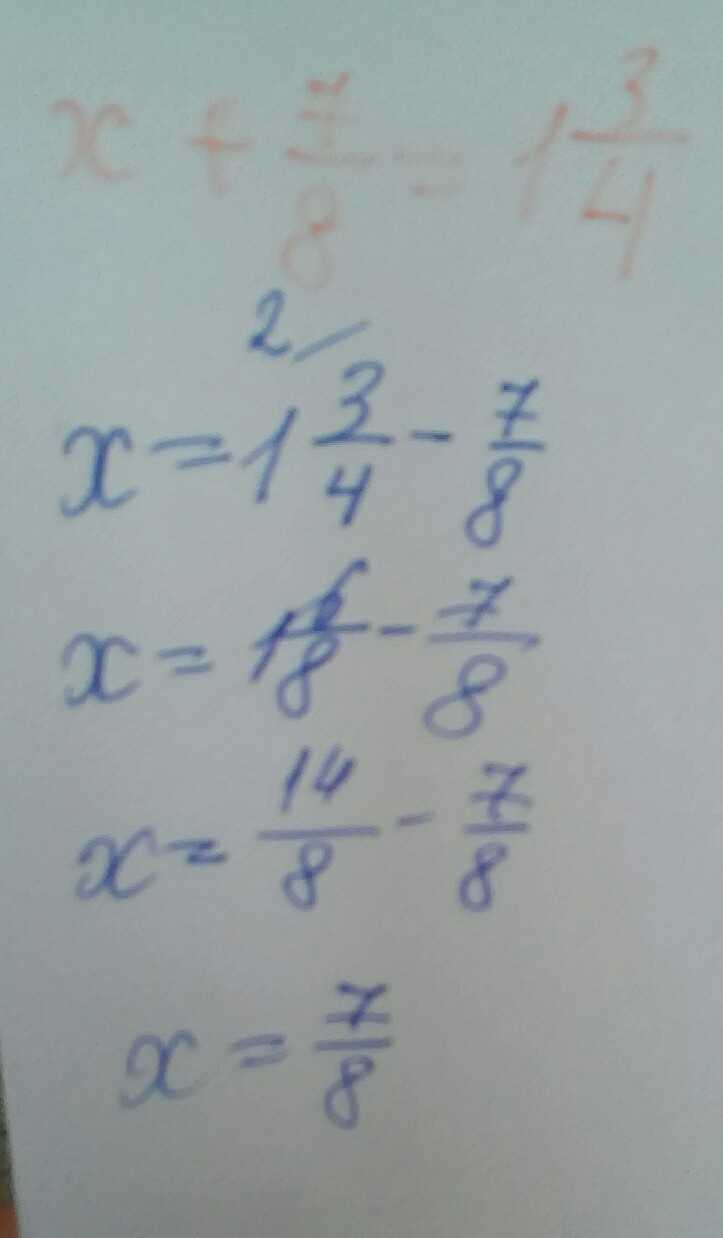 x + 7/8 = 1 3/4
2/
x = 1 3/4 - 7/8
x = 1 6/8 - 7/8
x = 14/8 - 7/8
x = 7/8